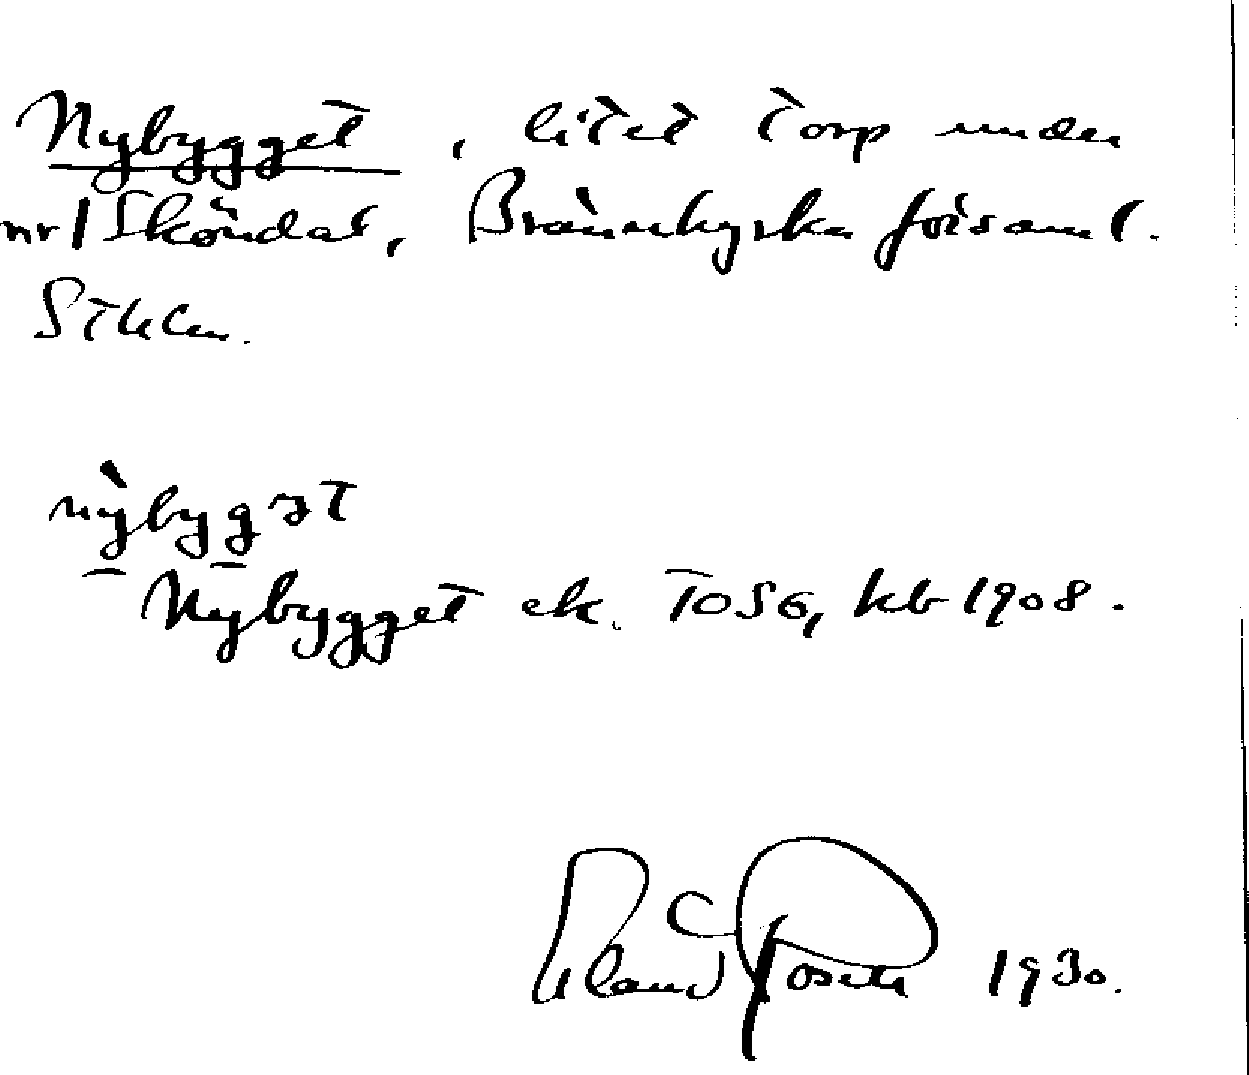 Nybygget, litet torp under
nr 1 Sköndal, Brännkyrka församl.
Sthlm.
nỳbygət
Nybygget ek. TOSG, kb 1908.
1930.